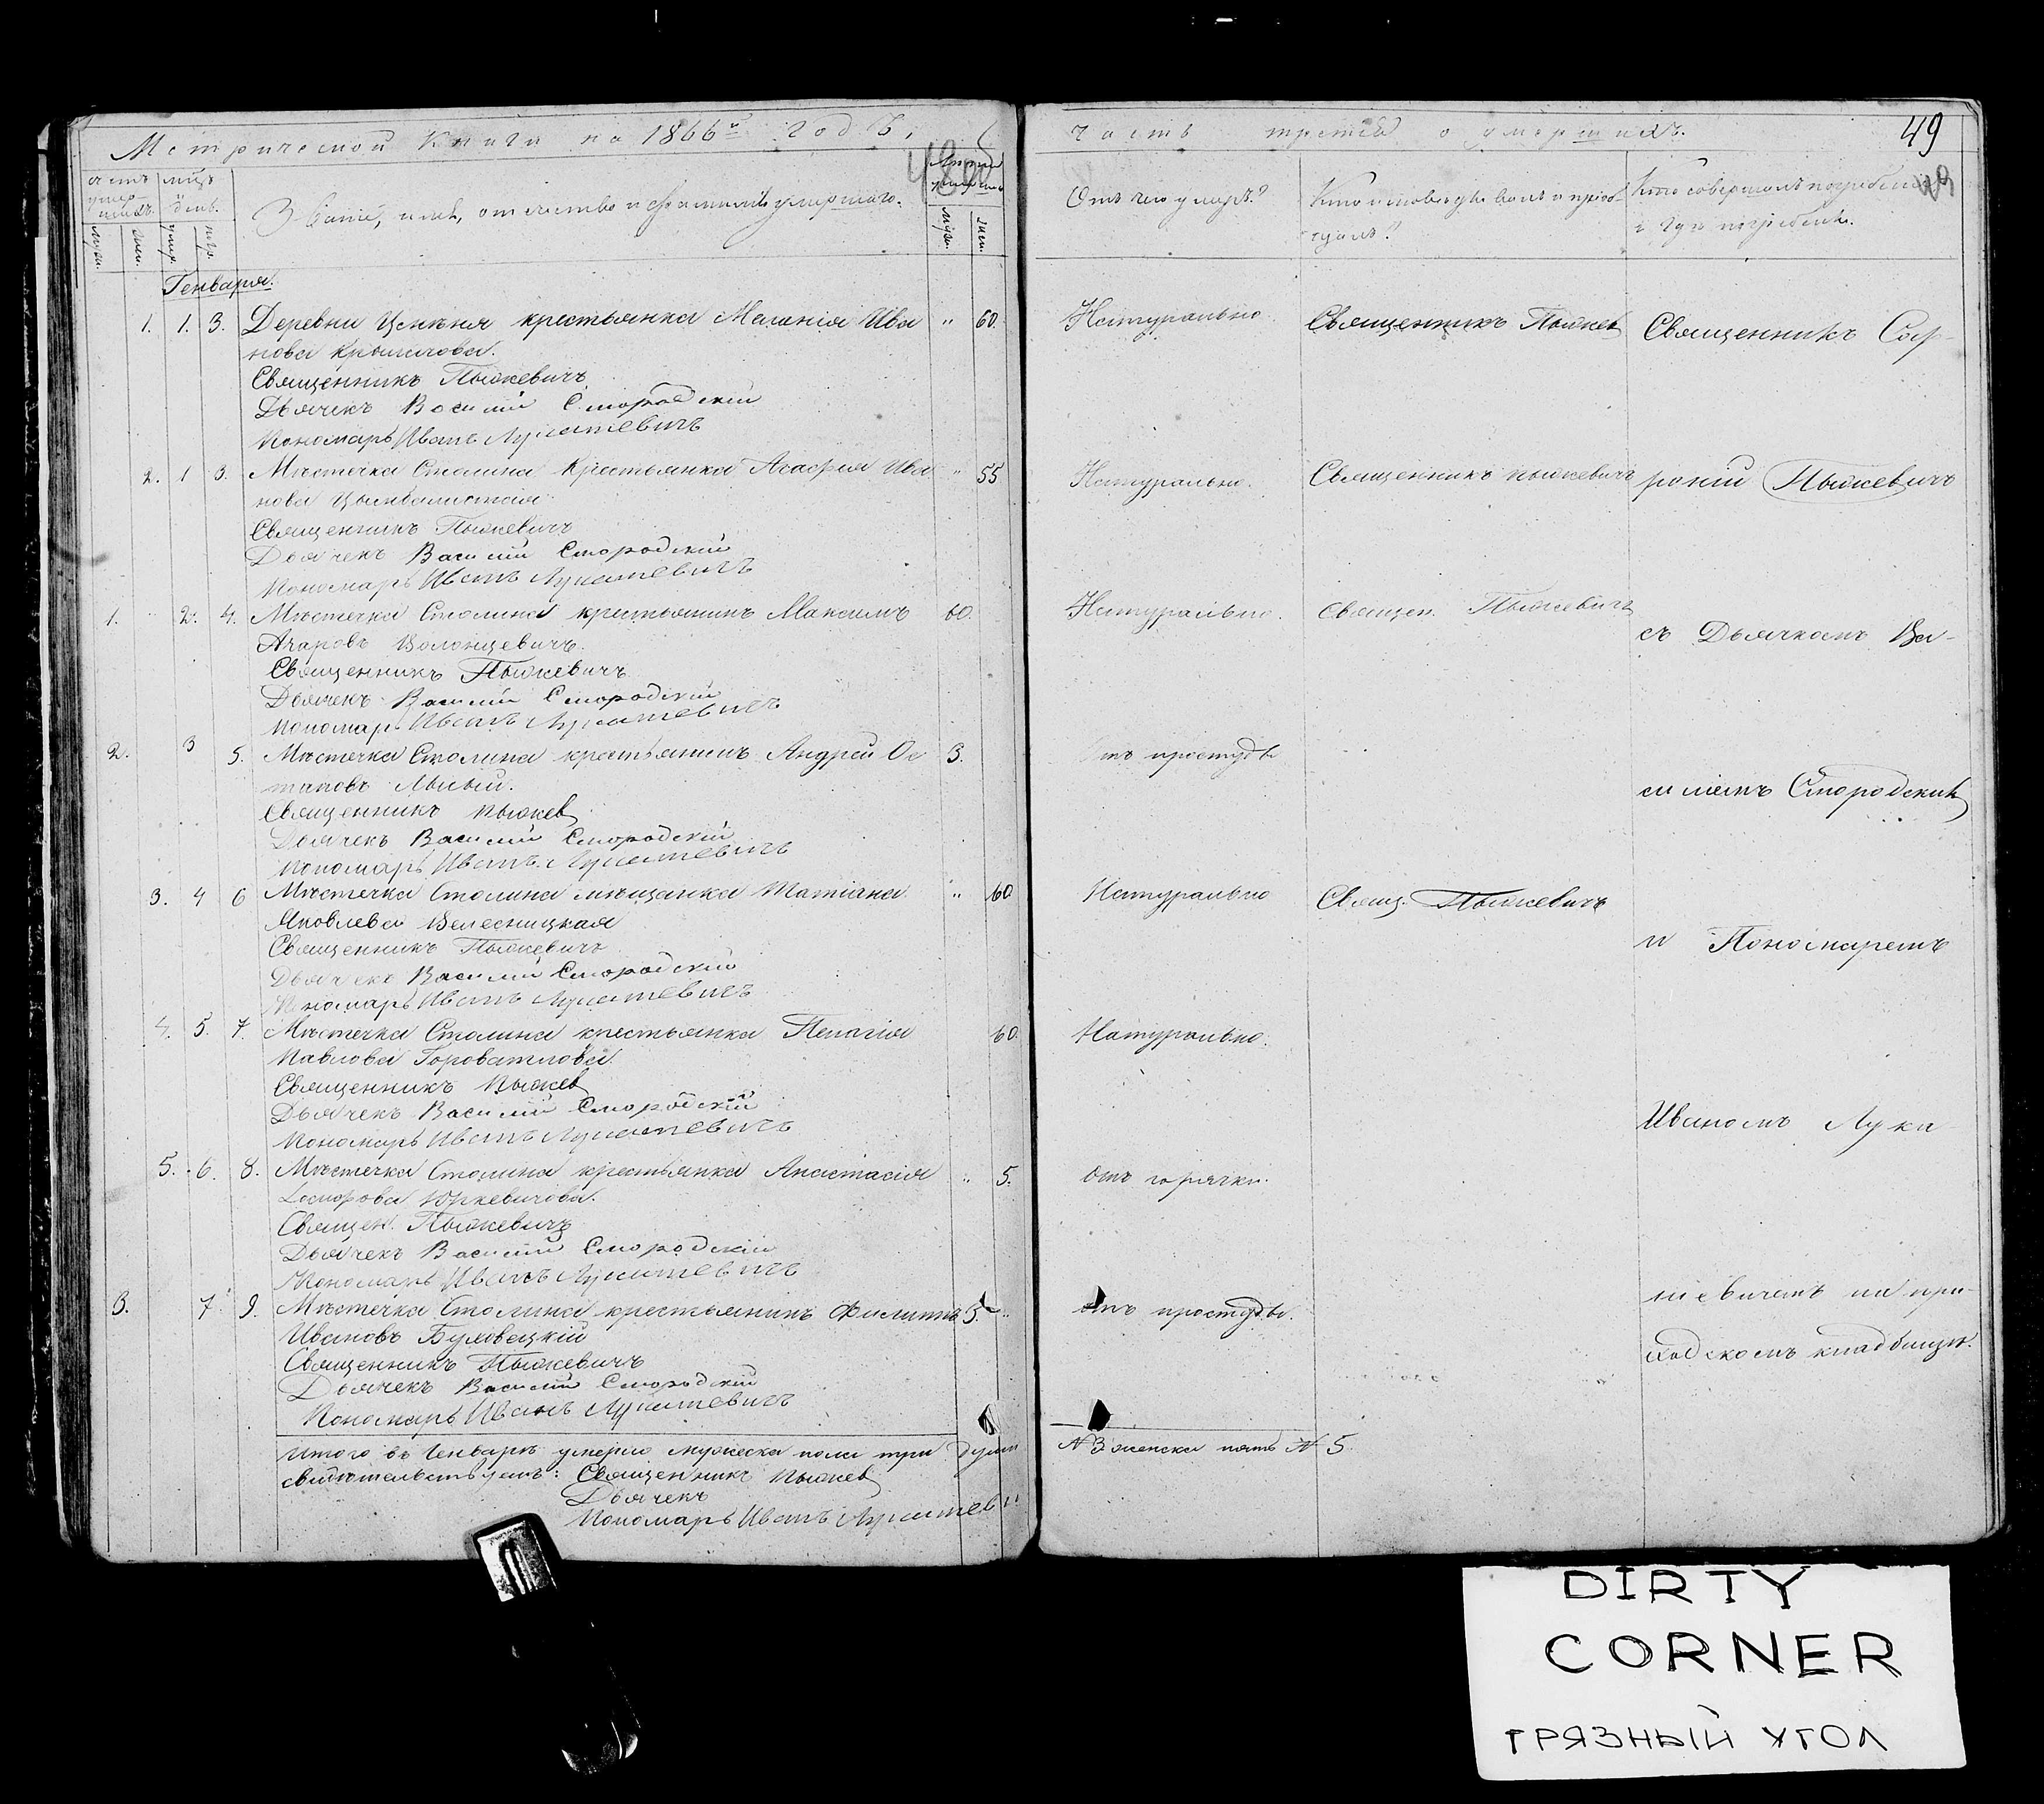 Метрической Книги на 1866й годъ,
часть третья о умершихъ.
49
Званіе, имя, отчество и фамилія умершаго.
Отъ чего умеръ?
Кто исповѣдывалъ и пріоб-
щалъ?
Кто совершалъ погребеніе
и гдѣ погребены.
муж. жен. умер. погр.
муж. жен.
Генваря.
1. 1. 3. Деревни Ценѣня крестьянка Меланія Ива " 60. Натурально Священникъ Пыжев Священникъ Соф-
нова
Священникъ Пыжевичъ
Дьячекъ Василій Смородскій
Пономарь Иванъ Лукашевичъ
2. 1 3. Мѣстечка Столина Крестьянка Агафия Ива " 55 Натурально. Священникъ Пыжевичъ роній Пыжевичъ
нова
Священникъ Пыжевичъ
Дьячекъ Василій Смородскій
Пономарь Иванъ Лукашевичъ
1. 2. 4. Мѣстечка Столина крестьянинъ Максимъ 60. Натурально. Священ. Пыжевичъ
съ Дьячкомъ Ва-
Священникъ Пыжевичъ
Дьячекъ Василій Смородскій
Пономарь Иванъ Лукашевичъ
2. 3 5. Мѣстечка Столина крестьянинъ Андрей Ос 3. отъ простуды
таповъ
силіемъ Смородским
Священникъ Пыжев
Дьячекъ Василій Смородскій
Пономарь Иванъ Лукашевичъ
3. 4 6 Мѣстечка Столина мѣщанка Татіана " 60 Натурально Свящ. Пыжевичъ
Яковлева Велесницкая
и Пономаремъ
Священникъ Пыжевичъ
Дьячекъ Василій Смородскій
Пономарь Иванъ Лукашевичъ
4. 5. 7. Мѣстечка Столина крестьянка Пелагія 60. Натурально.
Павлова
Священникъ Пыжев
Дьячекъ Василій Смородскій
Иваномъ Лука-
Пономарь Иванъ Лукашевичъ
5. 6. 8. Мѣстечка Столина крестьянка Анастасія " 5. отъ горячки.
Юркевичова.
Священ. Пыжевичъ
Дьячекъ Василій Смородскій
Пономарь Иванъ Лукашевичъ
3. 7. 9. Мѣстечка Столина крестьянинъ Филиппъ 5. " отъ простуды.
шевичемъ на при-
Ивановъ Буховецкій
ходскомъ кладбищѣ.
Священникъ Пыжевичъ
Дьячекъ Василій Смородскій
Пономарь Иванъ Лукашевичъ
Итого въ Генварѣ умерло мужеска пола три души № 3 женска пять № 5
свидѣтельствуемъ: Священникъ Пыжев
Дьячекъ
Пономарь Иванъ Лукашев
DIRTY
CORNER
ГРЯЗНЫЙ УГОЛ